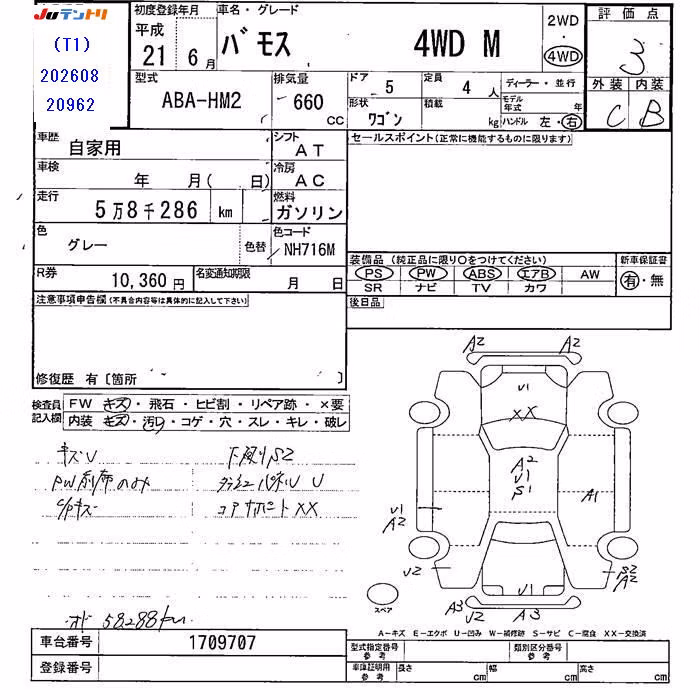 JUテントリ
(T1)
202608
20962
初度登録年月
平成
21年 6月
車名・グレード
バモス 4WD M
2WD
・
4WD
評価点
3
外装 内装
C B
型式
ABA-HM2
排気量
660
CC
ドア 5
形状 ワゴン
定員 4 人
積載 kg
ディーラー・並行
モデル年式 年
ハンドル 左・右
車歴 自家用
シフト AT
セールスポイント(正常に機能するものに限ります)
車検 年 月( 日)
冷房 AC
走行 5万8千286 km
燃料 ガソリン
色 グレー 色替
色コード NH716M
装備品(純正品に限り○をつけてください)
新車保証書
PS PW ABS エアB AW
有・無
SR ナビ TV カワ
R券 10,360円
名変通知期限 月 日
後日品
注意事項申告欄(不具合内容等は具体的に記入して下さい)
修復歴 有〔箇所 〕
検査員記入欄
FW キズ・飛石・ヒビ割・リペア跡・×要
内装 キズ・汚れ・コゲ・穴・スレ・キレ・破レ
キズU 下廻りS2
PW前席のみ U
コアサポートXX
58288km
A2 A2
U1
XX
A2
U1
S1
A1
U1
A2
U2
S2
A2
U1
A3
U2
A3
スペア
A-キズ E-エクボ U-凹み W-補修跡 S-サビ C-腐食 XX-交換済
車台番号 1709707
型式指定番号 参考
類別区分番号 参考
登録番号
車庫証明用 参考
長さ cm 幅 cm 高さ cm